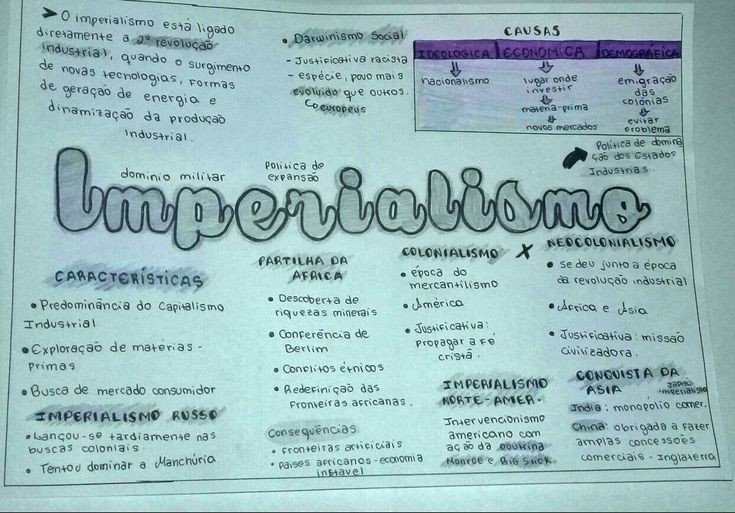 ➤ O imperialismo está ligado
diretamente a 2ª revolução
industrial, quando o surgimento
de novas tecnologias, formas
de geração de energia e
dinamização da produção
industrial.
• Darwinismo Social
- Justificativa racista
- espécie, povo mais
evoluído que outros.
↳ europeus
CAUSAS
IDEOLÓGICA | ECONÔMICA | DEMOGRÁFICA
nacionalismo
lugar onde
investir
matéria-prima
novos mercados
emigração
das
colônias
evitar
problema
Política de domina
ção dos Estados
Industrias.
dominio militar
Política de
expansão
Imperialismo
CARACTERÍSTICAS
• Predominância do Capitalismo
Industrial
• Exploração de matérias-
Primas
• Busca de mercado consumidor
IMPERIALISMO RUSSO
• Lançou-se tardiamente nas
buscas coloniais.
• Tentou dominar a Manchúria
PARTILHA DA
AFRICA
• Descoberta de
riquezas minerais
• Conferência de
Berlim
• Conflitos étnicos
• Redefinição das
Fronteiras africanas.
Consequências
• Fronteiras artificiais
• Países africanos - economia
instável
COLONIALISMO X NEOCOLONIALISMO
• época do
mercantilismo
• América
• Justificativa:
propagar a fé
cristã.
• se deu junto a época
da revolução industrial
• Africa e Asia
• Justificativa: missão
civilizadora.
IMPERIALISMO
NORTE-AMER.
Intervencionismo
americano com
ação da Doutrina
Monroe e Big Stick
CONQUISTA DA
ÁSIA
Japão
imperialismo
India: monopólio comer.
China: obrigada a fazer
amplas concessões
comerciais - Inglaterra